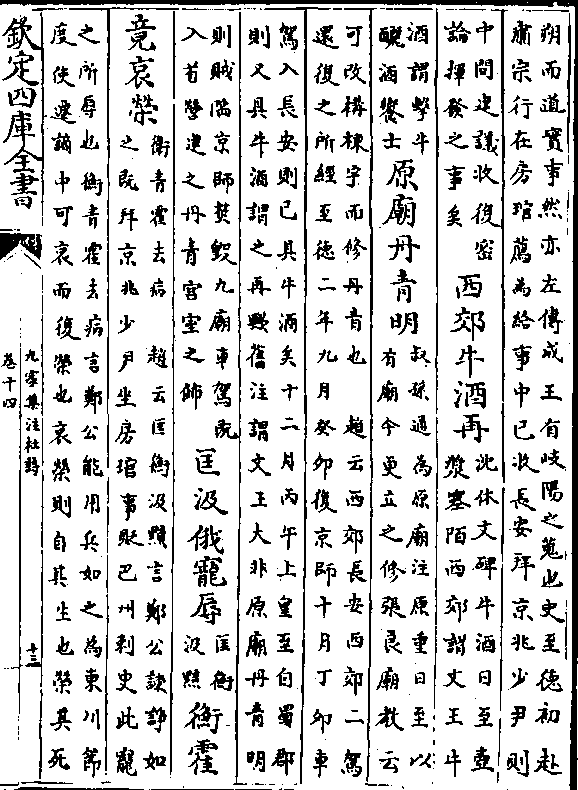 朔而道實事然亦左傳成王有岐陽之蒐也史至德初赴
肅宗行在房琯薦為給事中已收長安拜京兆少尹則
中間建議收復密
論揮發之事矣
西郊牛酒再
沈休文碑牛酒日至壺
漿塞陌西郊謂文王牛
酒謂擊牛
釃酒饗士
原廟丹青明
叔孫通為原廟注原重日至以
有廟今更立之修張良廟教云
可改構棟宇而修丹青也
趙云西郊長安西郊二駕
還復之所經至德二年九月癸卯復京師十月丁卯車
駕入長安則已具牛酒矣十二月丙午上皇至自蜀郡
則又具牛酒謂之再戰舊注謂文王大非原廟丹青明
則賊陷京師焚毀九廟車駕既
入首營建之丹青宮室之飾
匡汲俄寵辱
匡衡
汲黯
衡霍
竟哀榮
衡青霍去病
趙云匡衡汲黯言鄭公諫諍如
之既拜京兆少尹坐房琯事貶巴州刺史此寵
之所辱也衡青霍去病言鄭公能用兵如之為東川節
度使遷謫中可哀而復榮也哀榮則自其生也榮其死
欽定四庫全書
九家集注杜詩
卷十四
十三